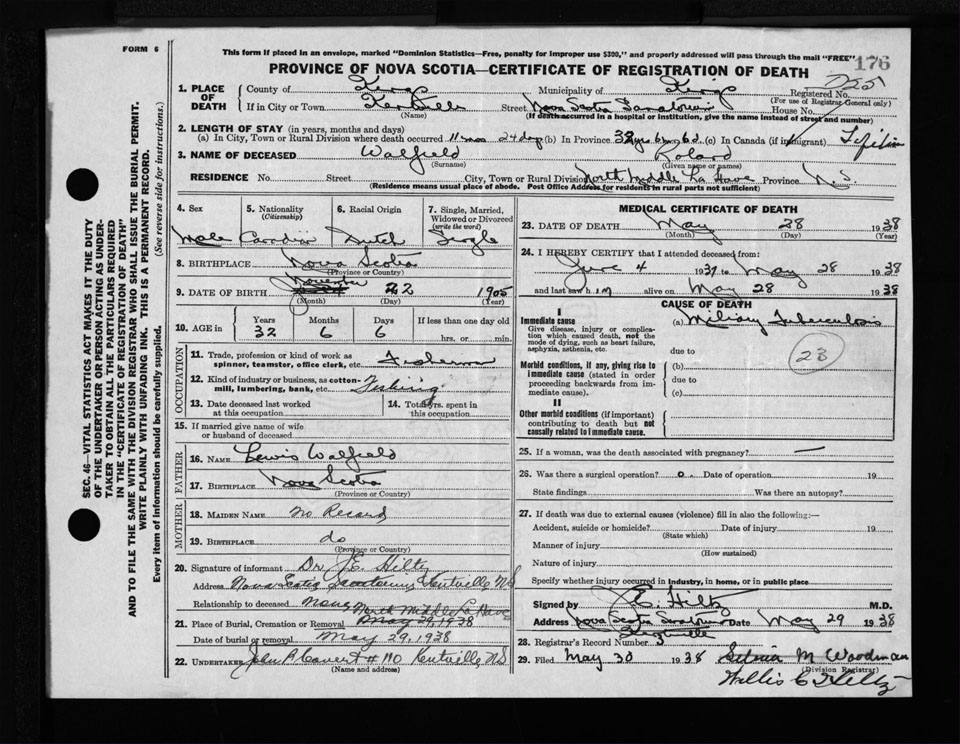 FORM 6
This form if placed in an envelope, marked "Dominion Statistics—Free, penalty for improper use $300," and properly addressed will pass through the mail "FREE"
176
PROVINCE OF NOVA SCOTIA—CERTIFICATE OF REGISTRATION OF DEATH
1. PLACE OF DEATH
County of Kings Municipality of Kings Registered No. 725
(For use of Registrar-General only)
If in City or Town Kentville Street Nova Scotia Sanatorium House No.
(Name) (If death occurred in a hospital or institution, give the name instead of street and number)
2. LENGTH OF STAY (in years, months and days)
(a) In City, Town or Rural Division where death occurred 11 mos 24 days (b) In Province 32 yrs 6 mo 6 d. (c) In Canada (if immigrant) Lifetime
3. NAME OF DECEASED Walfield Roland
(Surname) (Given name or names)
RESIDENCE No. Street City, Town or Rural Division North Middle La Have Province N.S.
(Residence means usual place of abode. Post Office Address for residents in rural parts not sufficient)
4. Sex 5. Nationality (Citizenship) 6. Racial Origin 7. Single, Married, Widowed or Divorced (write the word)
Male Canadian Dutch Single
8. BIRTHPLACE Nova Scotia
(Province or Country)
November
9. DATE OF BIRTH 22 1905
(Month) (Day) (Year)
10. AGE in Years Months Days If less than one day old
32 6 6 hrs. or min.
OCCUPATION
11. Trade, profession or kind of work as spinner, teamster, office clerk, etc. Fisherman
12. Kind of industry or business, as cotton-mill, lumbering, bank, etc. Fishing
13. Date deceased last worked at this occupation
14. Total yrs. spent in this occupation
15. If married give name of wife or husband of deceased
FATHER
16. NAME Lewis Walfield
17. BIRTHPLACE Nova Scotia
(Province or Country)
MOTHER
18. MAIDEN NAME No Record
19. BIRTHPLACE do
(Province or Country)
20. Signature of informant Dr. J.E. Hiltz
Address Nova Scotia Sanatorium, Kentville, N.S.
Relationship to deceased None
North Middle La Have
21. Place of Burial, Cremation or Removal May 29, 1938
Date of burial or removal May 29, 1938
22. UNDERTAKER Kentville N.S.
MEDICAL CERTIFICATE OF DEATH
23. DATE OF DEATH May 28 1938
(Month) (Day) (Year)
24. I HEREBY CERTIFY that I attended deceased from:
June 4 1937 to May 28 1938
and last saw him alive on May 28 1938
CAUSE OF DEATH
I
Immediate cause
Give disease, injury or complication which caused death, not the mode of dying, such as heart failure, asphyxia, asthenia, etc.
(a) Miliary Tuberculosis
23
due to
Morbid conditions, if any, giving rise to immediate cause (stated in order proceeding backwards from immediate cause).
(b)
due to
(c)
II
Other morbid conditions (if important) contributing to death but not causally related to immediate cause.
25. If a woman, was the death associated with pregnancy? —
26. Was there a surgical operation? o. Date of operation 19
State findings Was there an autopsy?
27. If death was due to external causes (violence) fill in also the following:—
Accident, suicide or homicide? Date of injury 19
(State which)
Manner of injury
(How sustained)
Nature of injury
Specify whether injury occurred in industry, in home, or in public place
Signed by J.E. Hiltz M.D.
Address Nova Scotia Sanatorium Date May 29 1938
Kentville
28. Registrar's Record Number
29. Filed May 30 1938 M Woodman
(Division Registrar)
SEC. 46—VITAL STATISTICS ACT MAKES IT THE DUTY OF THE UNDERTAKER OR PERSON ACTING AS UNDERTAKER TO OBTAIN ALL THE PARTICULARS REQUIRED IN THE "CERTIFICATE OF REGISTRATION OF DEATH"
AND TO FILE THE SAME WITH THE DIVISION REGISTRAR WHO SHALL ISSUE THE BURIAL PERMIT.
WRITE PLAINLY WITH UNFADING INK. THIS IS A PERMANENT RECORD.
Every item of information should be carefully supplied. (See reverse side for instructions.)